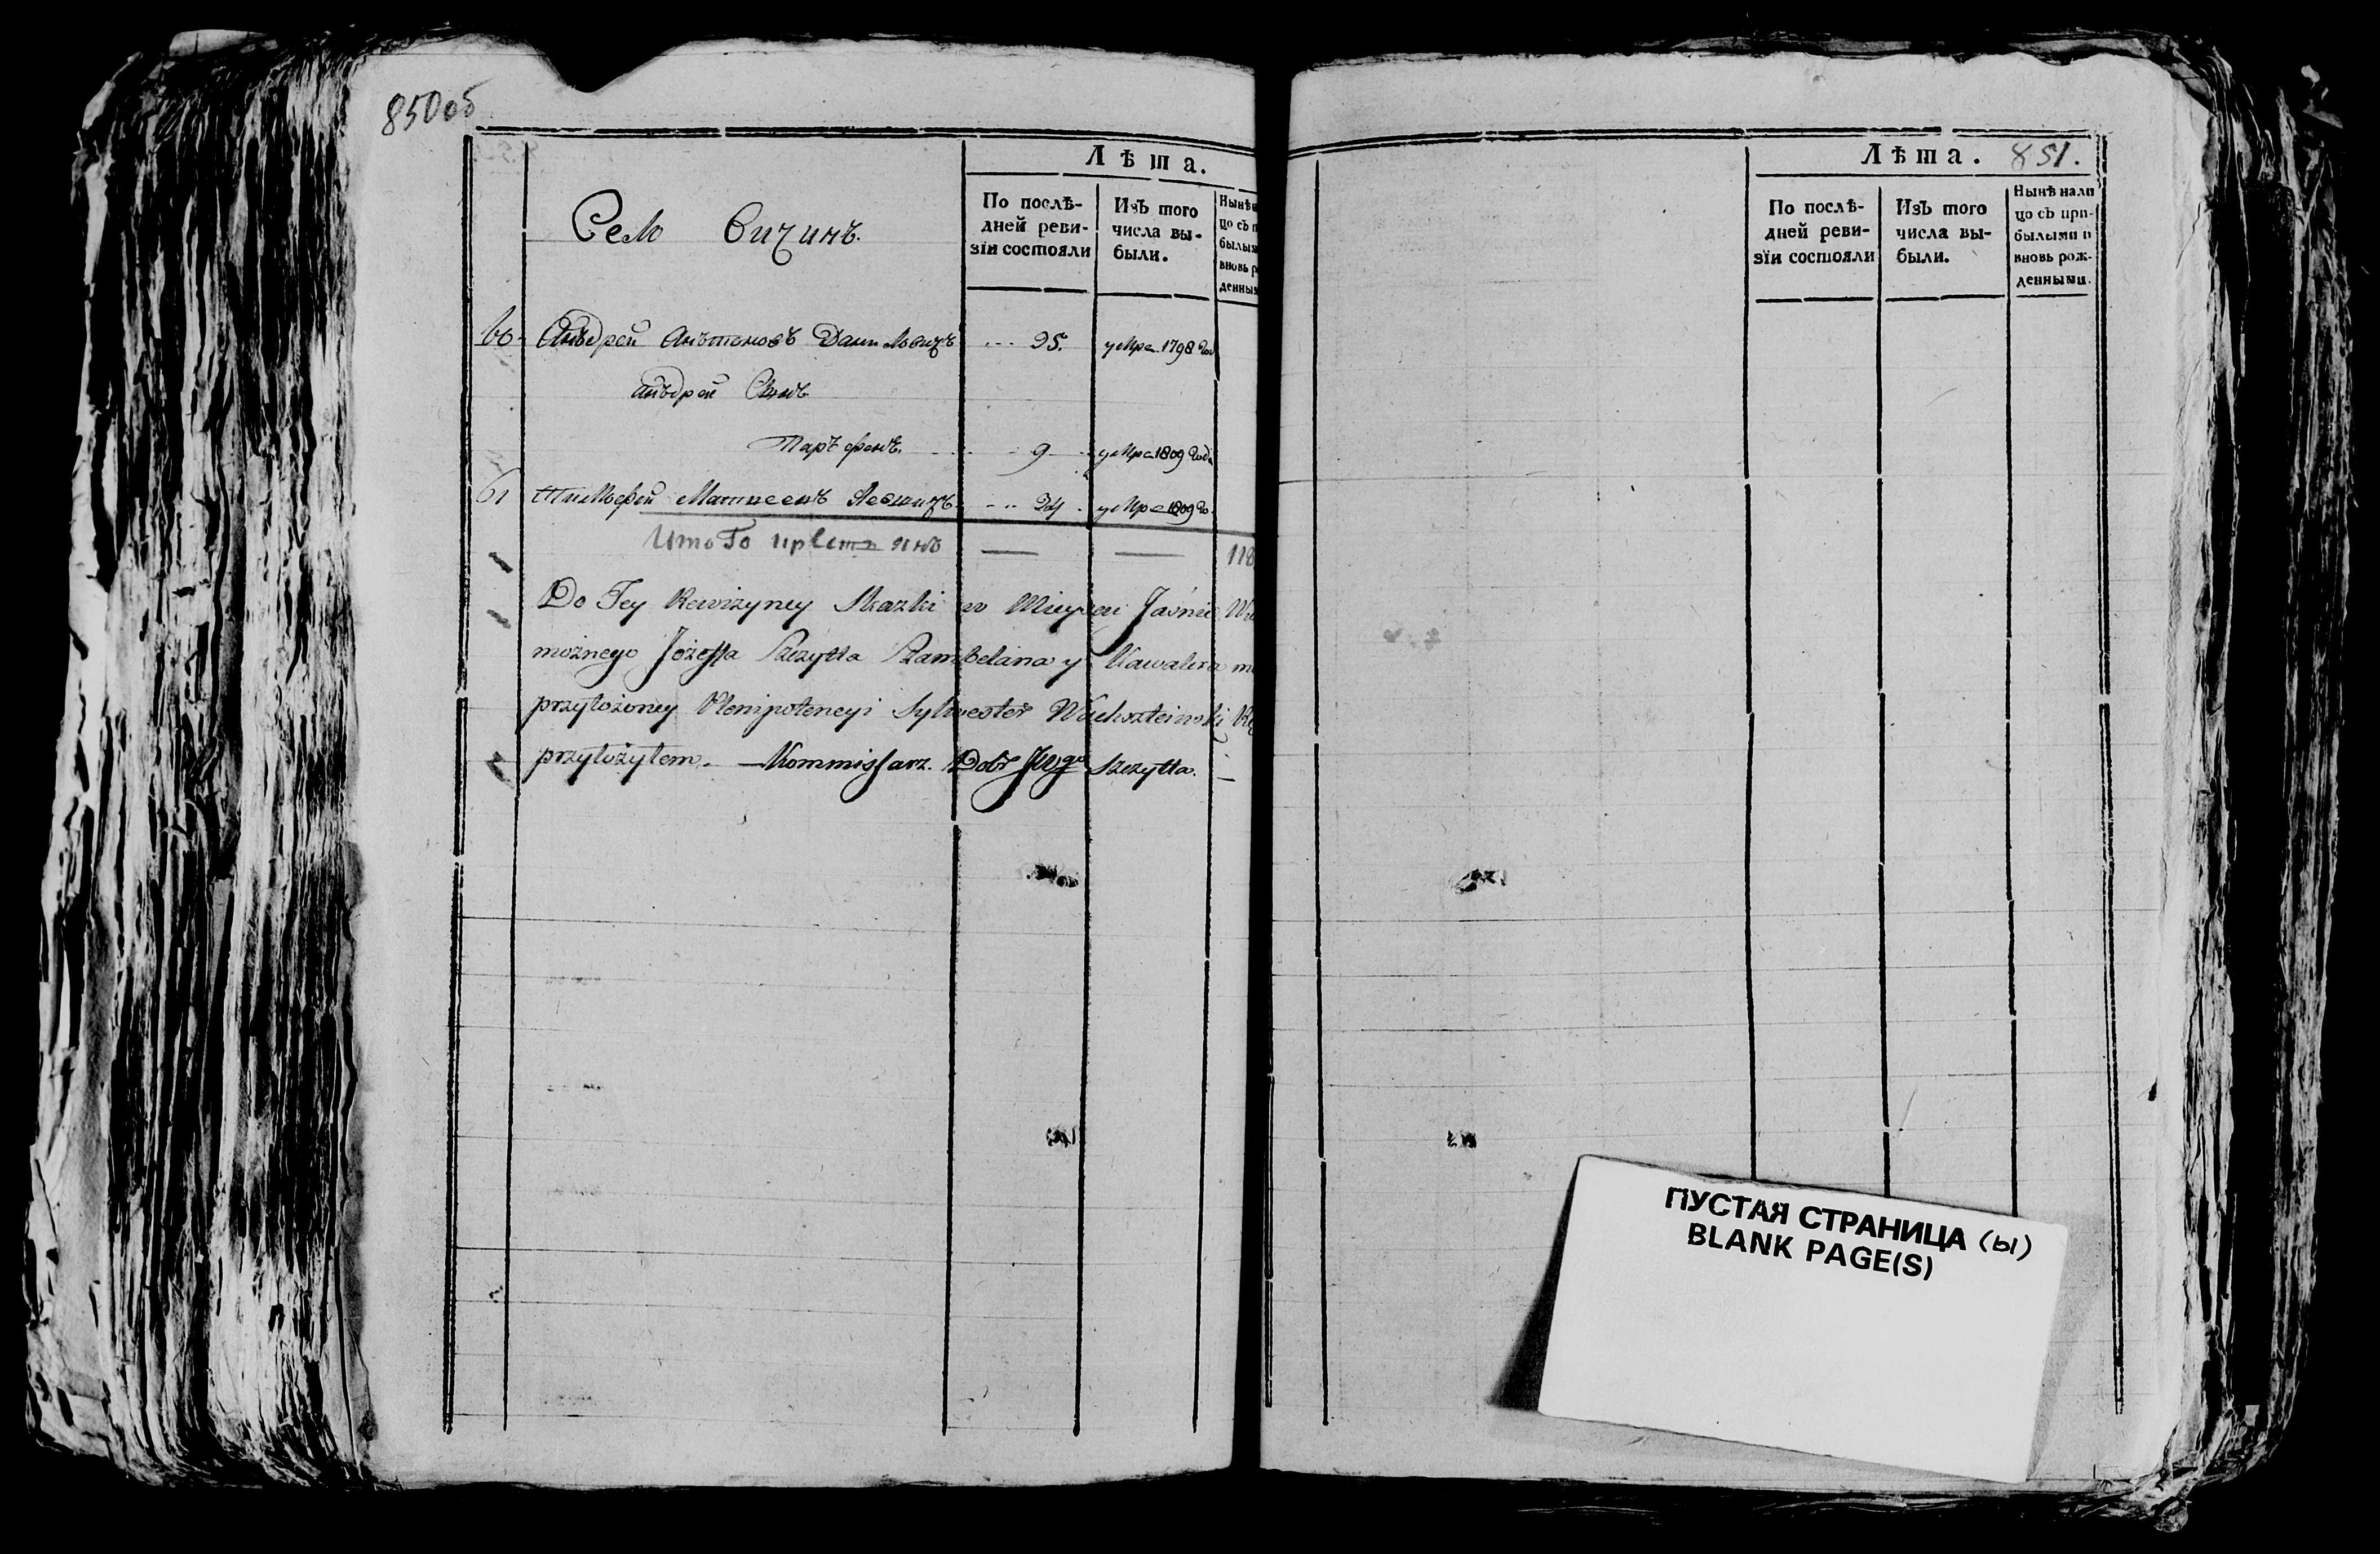 850об
Лѣта.
По послѣ-
дней реви-
зіи состояли
Изъ того
числа вы-
были.
Село Вичинъ.
60 Анъдрей Анътоновъ Данилович ... 95. умре 1798 год
Анъдрей Сынъ
Паръфенъ. 9 умре 1809 года
61 Тимофей Матвеевъ Левчицъ ... 24. умре 1809 го
Итого — — 118
Do Tey Rewizyney Skazki w Mieyscu Jaśnie
możnego Józeffa Szczytta Szambelana y Kawalera
przyłożoney Plenipotencyi Sylwester
przyłożyłem. — Kommissarz Dobr JWgo Szczytta. —
Лѣта. 851.
По послѣ-
дней реви-
зіи состояли
Изъ того
числа вы-
были.
Нынѣ нали
цо съ при-
былыми и
вновь рож-
денными.
ПУСТАЯ СТРАНИЦА (Ы)
BLANK PAGE(S)